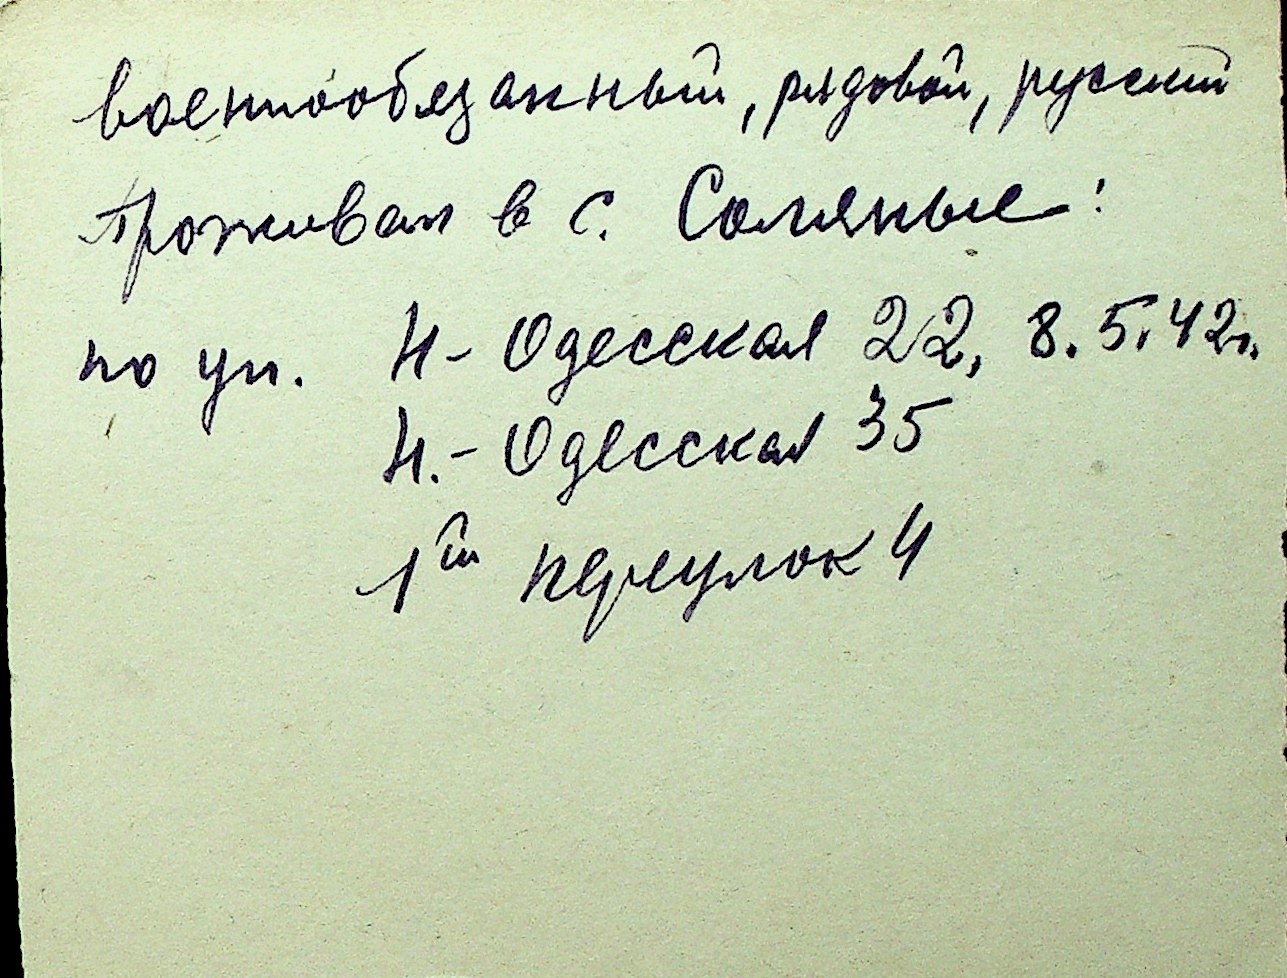 военнообязанный, рядовой, русский
Проживал в с. Соляные:
по ул. Н-Одесская 22, 8.5.42г.
Н.-Одесская 35
1ый переулок 4